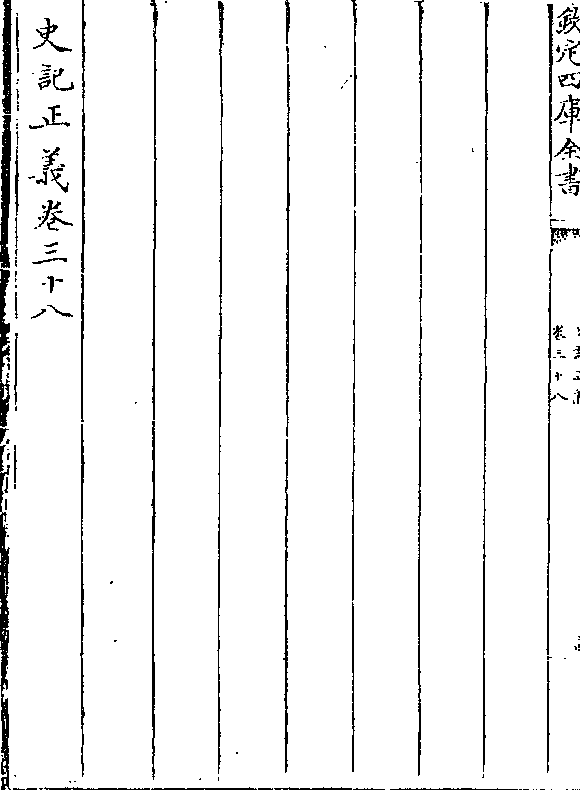 欽定四庫全書
卷三十八
史記正義卷三十八